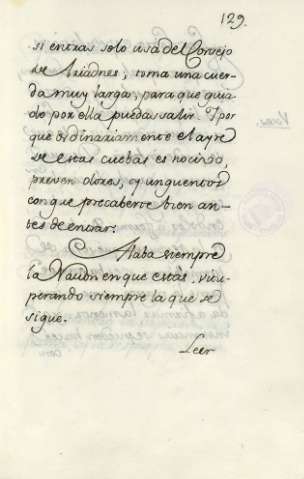 129.
si entras solo usa del Consejo
de Ariadnes, toma una cuer-
da muy larga, para que guia-
do por ella puedas salir. Y por
que ordinariamente el ayre
de estas cuebas es nocivo,
preven olores, y unguentos
con que precaberte bien an-
tes de entrar.
Alaba siempre
la Nacion en que estás, vitu-
perando siempre la que se
sigue.
Leer